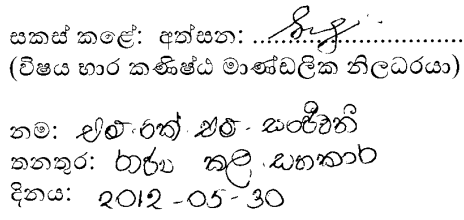 සකස් කළේ: අත්සන: ..............................
(විෂය භාර කණිෂ්ඨ මාණ්ඩලික නිලධරයා)
නම: එම් එක් එම සංජීවනී
තනතුර: රාජ්‍ය කල සහකාර
දිනය: 2012-05-30